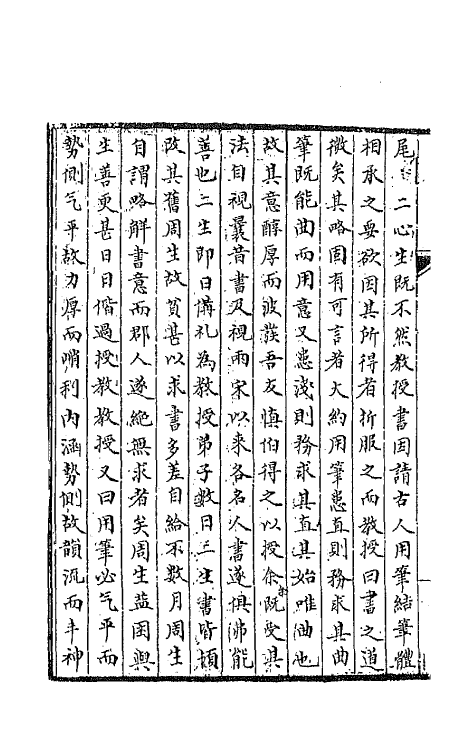 尾二心生既不然教授書因請古人用筆結筆體
相承之要欲因其所得者折服之而教授曰書之道
微矣其略固有可言者大約用筆患直則務求其曲
筆既能曲而用意又患淺則務求其直其始唯曲也
故其意醇厚而波發吾友慎伯得之以授余既受其
法自視曩昔書及視兩宋以來各名人書遂俱彿能
善也二生即日備礼為教授弟子數日二生書皆頓
改其舊周生故貧甚以求書多差自給不數月周生
自謂略解書意而郡人遂絕無求者矣周生益困與
生善更甚日日偕過授教教授又曰用筆必气平而
勢側气平故力厚而哨利內涵勢側故韻沉而丰神